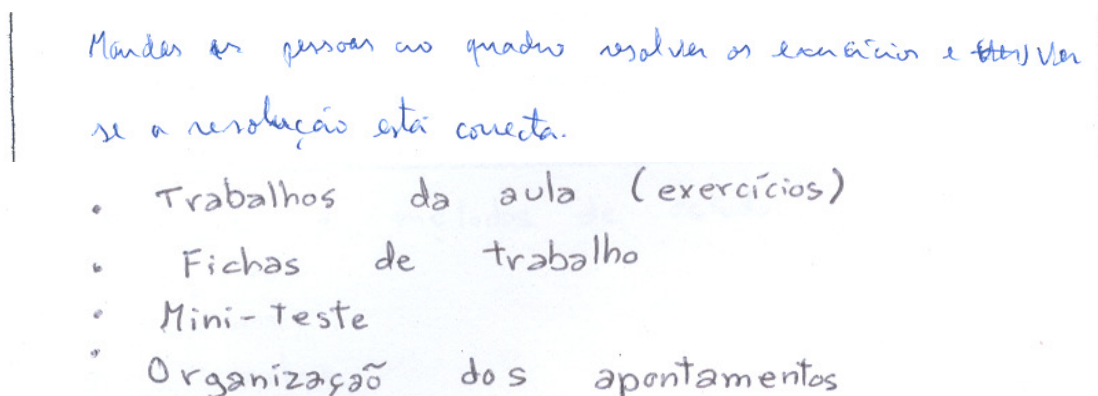 Mandar as pessoas ao quadro resolver os exercícios e ver
se a resolução está correcta.
• Trabalhos da aula (exercícios)
• Fichas de trabalho
• Mini-Teste
• Organização dos apontamentos